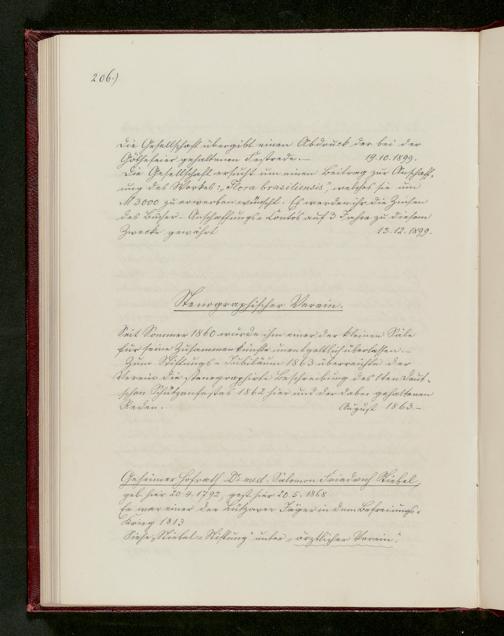 206.)
Die Gesellschaft übergibt einen Abdruck der bei der
Göthefeier gehaltenen Festrede.— 19.10.1899.
Die Gesellschaft ersucht um einen Beitrag zur Anschaff-
ung des Werkes: „Flora brasiliensis", welches sie um
M 3000 zu erwerben wünscht. Es werden ihr die Zinsen
des Bücher-Anschaffungs-Contos auf 3 Jahre zu diesem
Zwecke gewährt 13.12.1899.
Stenographischer Verein.
Seit Sommer 1860 wurde ihm einer der kleinen Säle
für seine Zusammenkünfte unentgeltlich überlassen.—
Zum Stiftungs-Jubiläum 1863 überreichte der
Verein die stenographirte Beschreibung des 1ten Deut-
schen Schützenfestes 1862 hier und der dabei gehaltenen
Reden. August 1863.—
Geheimer Hofrath Dr. med. Salomon Friedrich Stiebel,
geb. hier 20.4.1792, gest. hier 20.5.1868
Er war einer der Lützower Jäger in dem Befreiungs-
Krieg 1813
Siehe „Stiebel-Stiftung" unter „ärztlicher Verein".